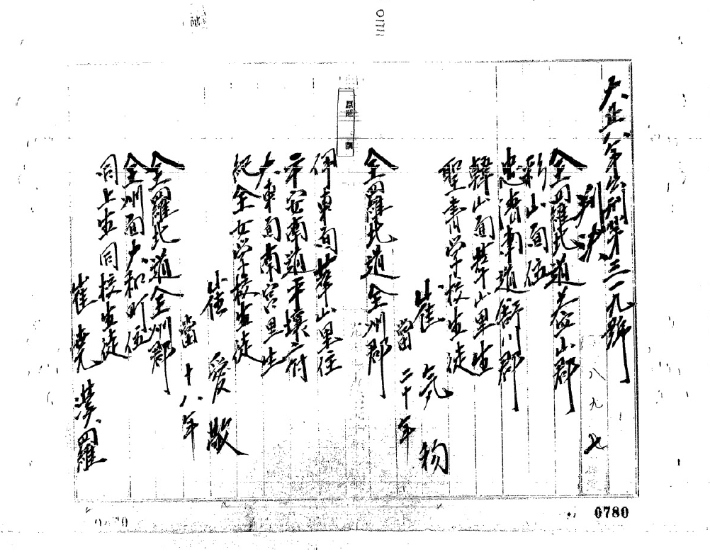 大正八年公刑第三一九號
判決
全羅北道益山郡
彩山面住
忠淸南道舒川郡
韓山面草山里生
聖書学校生徒
崔
當二十年
全羅北道全州郡
伊東面華山里住
平安南道平壤府
大東面南宮里生
紀全女学校生徒
崔愛敬
當十八年
全羅北道全州郡
全州面大和町住
同上生同校生徒
崔堯漢羅
八九七
0780